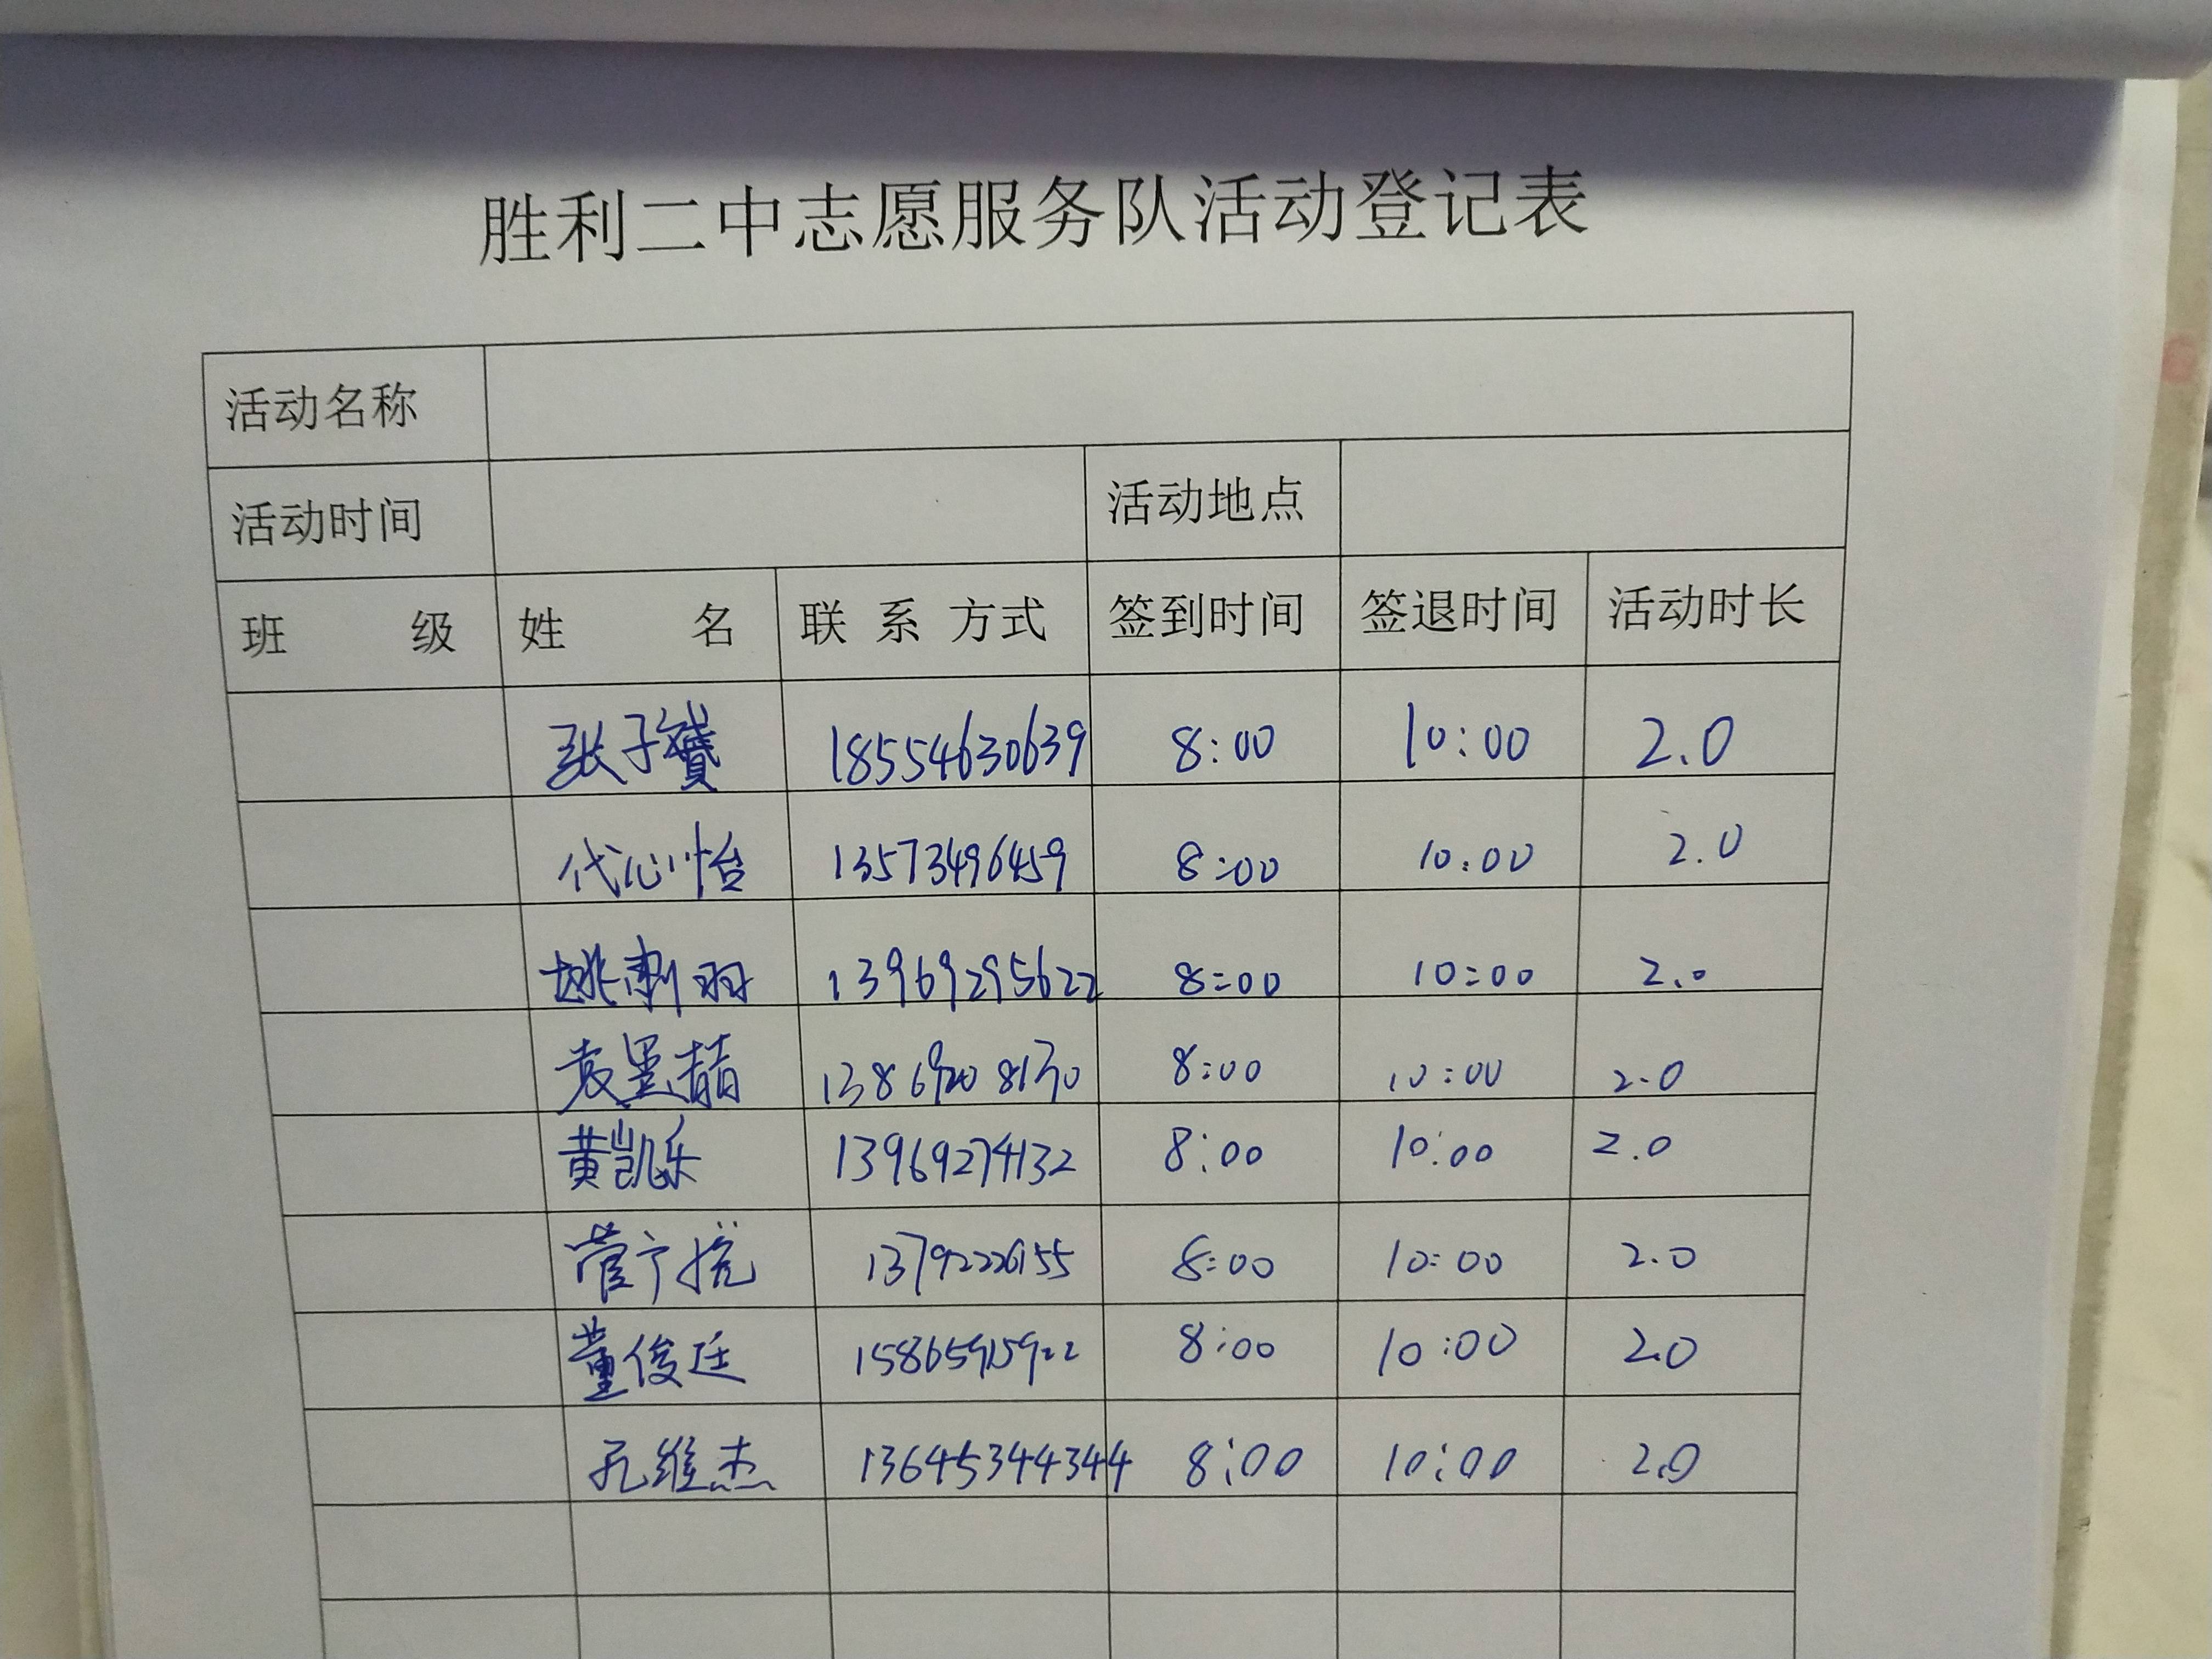 胜利二中志愿服务队活动登记表
活动名称
活动时间 活动地点
班 级 姓 名 联 系 方式 签到时间 签退时间 活动时长
张子 18554630639 8:00 10:00 2.0
代心怡 13573496459 8:00 10:00 2.0
姚 羽 13969295622 8:00 10:00 2.0
袁墨喆 8:00 10:00 2.0
黄凯乐 13969274132 8:00 10:00 2.0
管宁 8:00 10:00 2.0
董俊廷 15865915922 8:00 10:00 2.0
孔维杰 13645344344 8:00 10:00 2.0